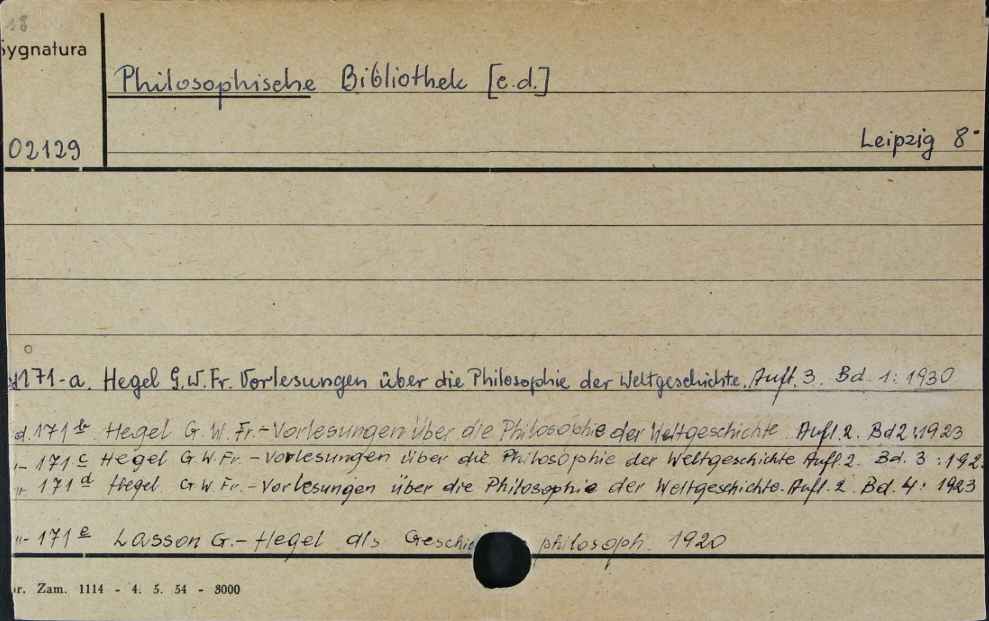 18
Sygnatura
Philosophische Bibliothek [c.d.]
02129
Leipzig 8°
d 171-a. Hegel G.W.Fr. Vorlesungen über die Philosophie der Weltgeschichte. Aufl. 3. Bd. 1: 1930
d. 171 b Hegel G. W. Fr.-Vorlesungen über die Philosophie der Weltgeschichte Aufl. 2. Bd 2: 1923
"- 171 c Hegel G W.Fr. - Vorlesungen über die Philosophie der Weltgeschichte Aufl. 2. Bd. 3 : 192
"- 171 d Hegel G W Fr. - Vorlesungen über die Philosophie der Weltgeschichte. Aufl. 2. Bd. 4: 1923
"- 171 e Lasson G.- Hegel als philosoph. 1920
r. Zam. 1114 - 4. 5. 54 - 8000